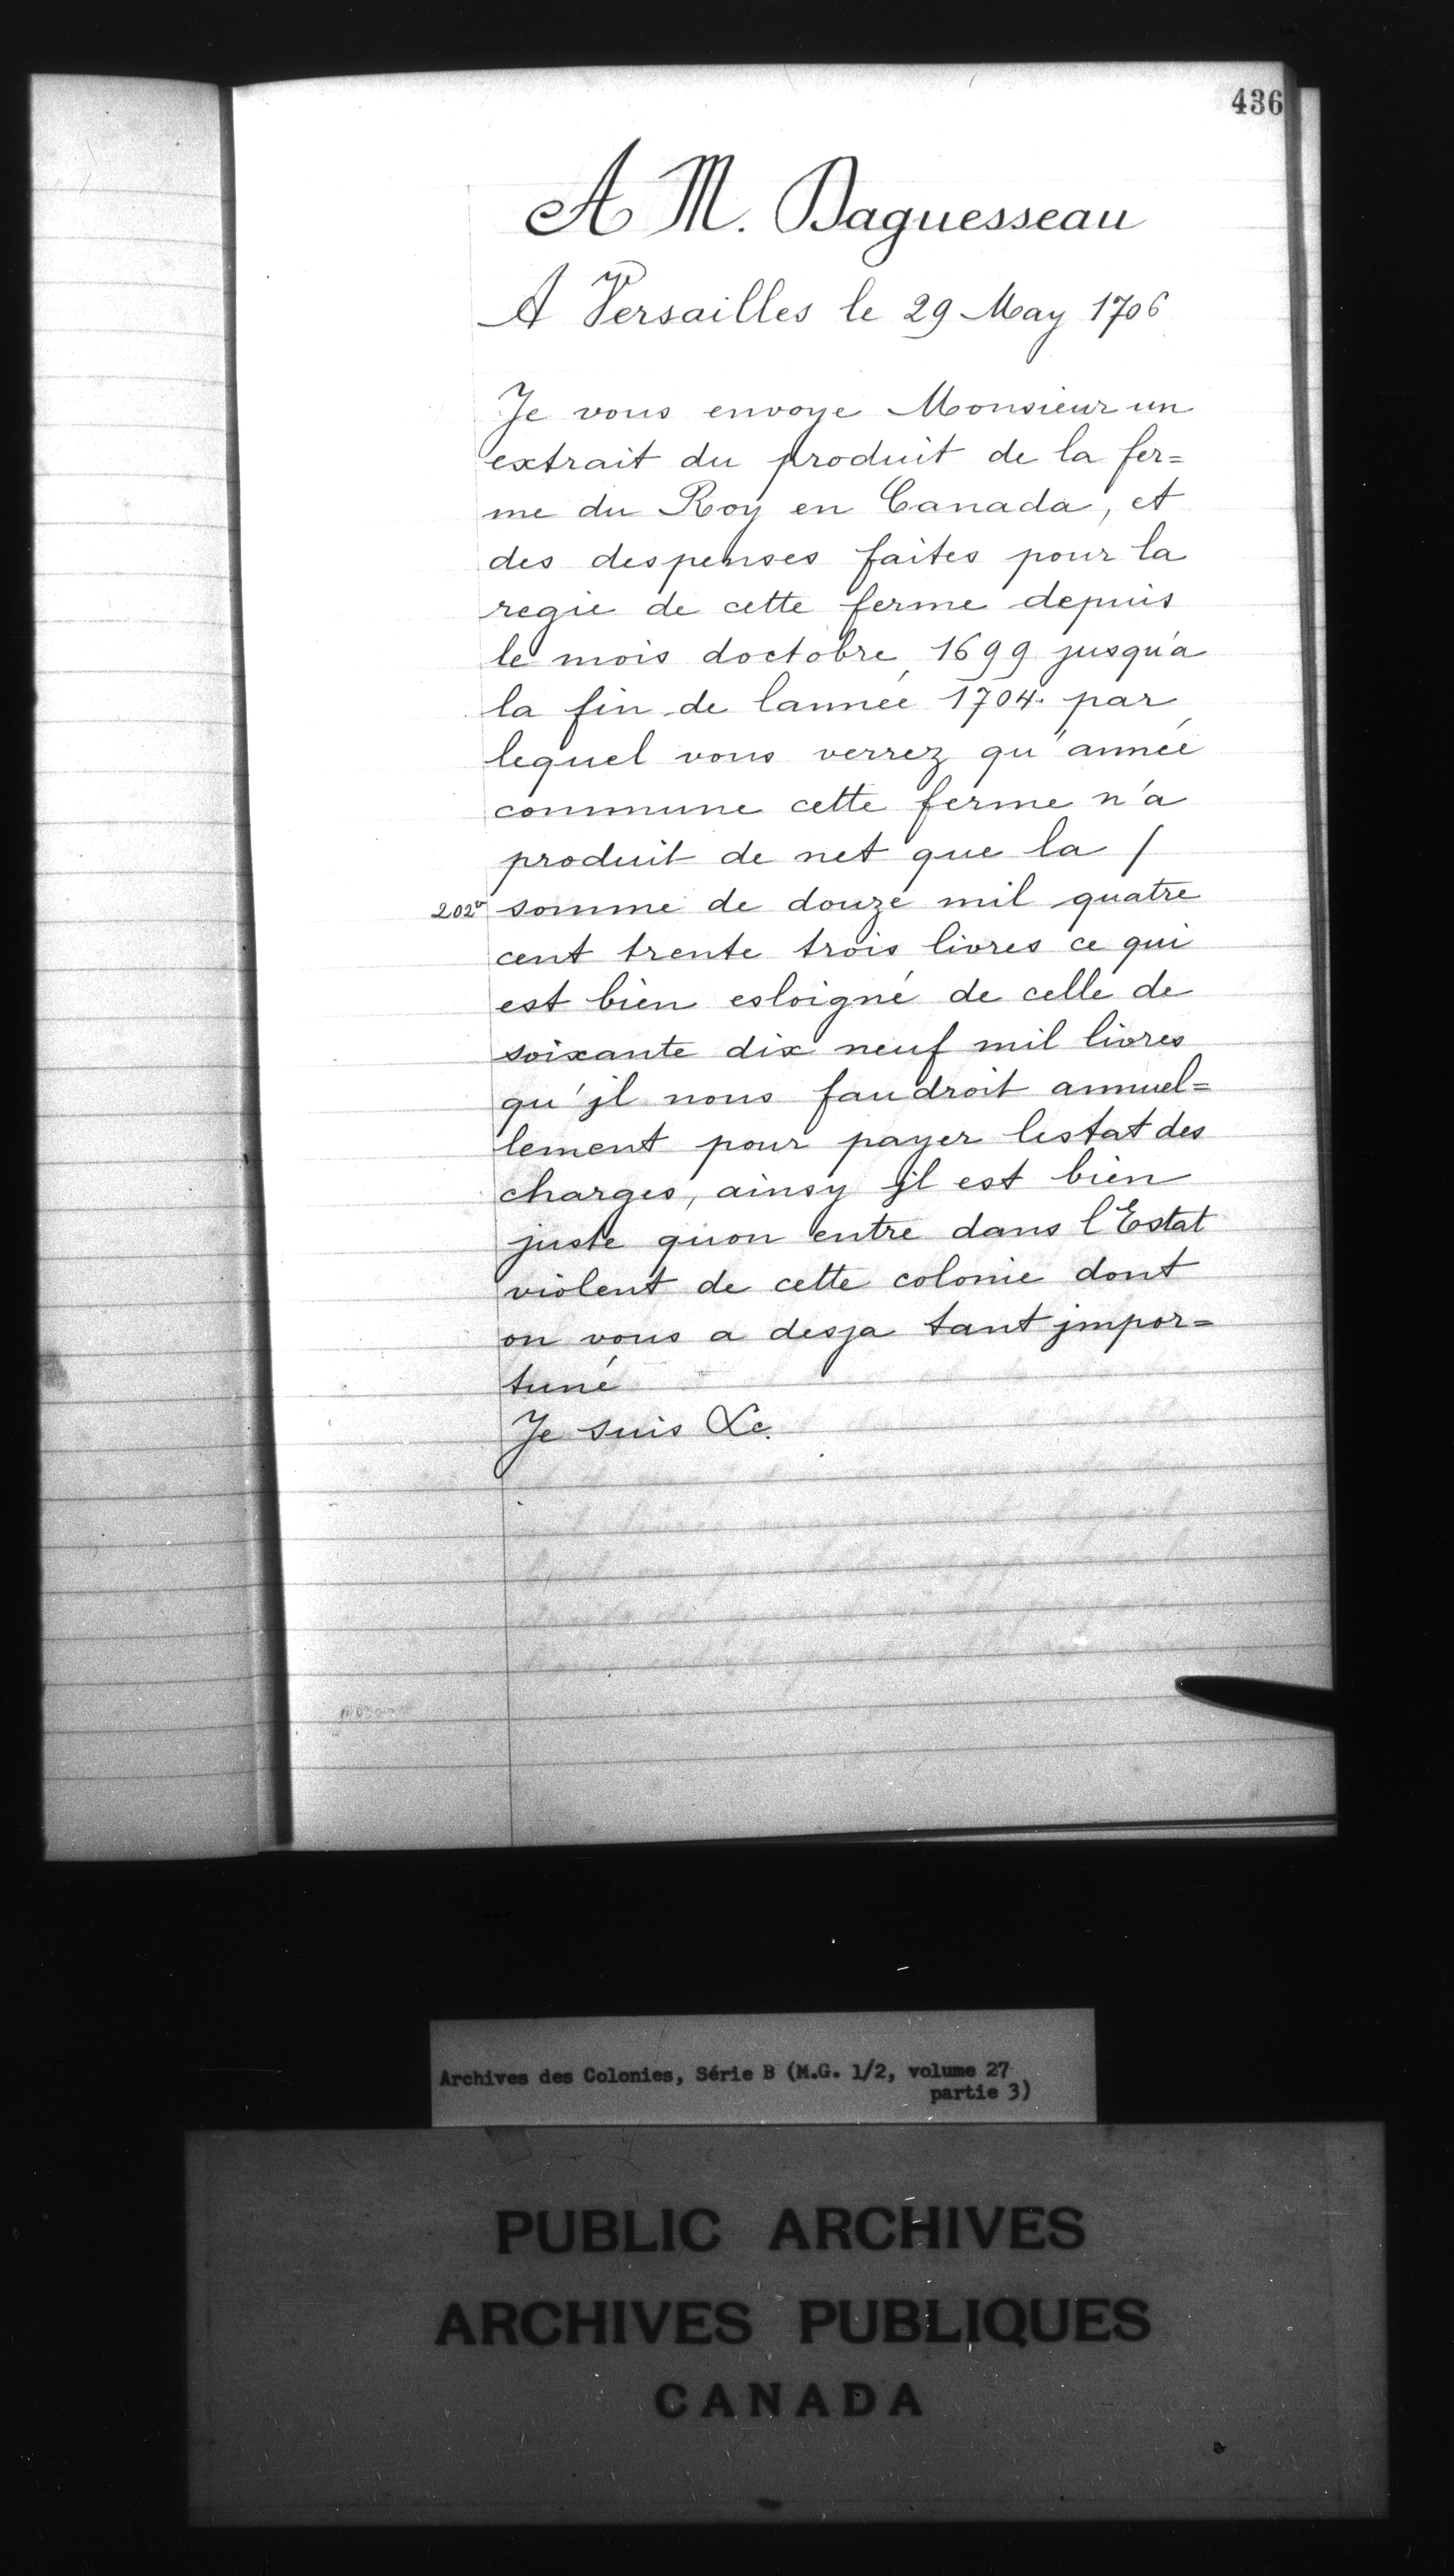 436
A M. Daguesseau
A Versailles le 29 May 1706
Je vous envoye Monsieur un
extrait du produit de la fer=
me du Roy en Canada, et
des despenses faites pour la
regie de cette ferme depuis
le mois doctobre 1699 jusqu'a
la fin de lannee 1704. par
lequel vous verrez qu'année
commune cette ferme n'a
produit de net que la /
202v somme de douze mil quatre
cent trente trois livres ce qui
est bien esloigné de celle de
soixante dix neuf mil livres
qu'jl nous faudroit annuel=
lement pour payer lestat des
charges, ainsy jl est bien
juste quon entre dans l'Estat
violent de cette colonie dont
on vous a desja tant jmpor=
tuné
Je suis &c.
Archives des Colonies, Série B (M.G. 1/2, volume 27
partie 3)
PUBLIC ARCHIVES
ARCHIVES PUBLIQUES
CANADA